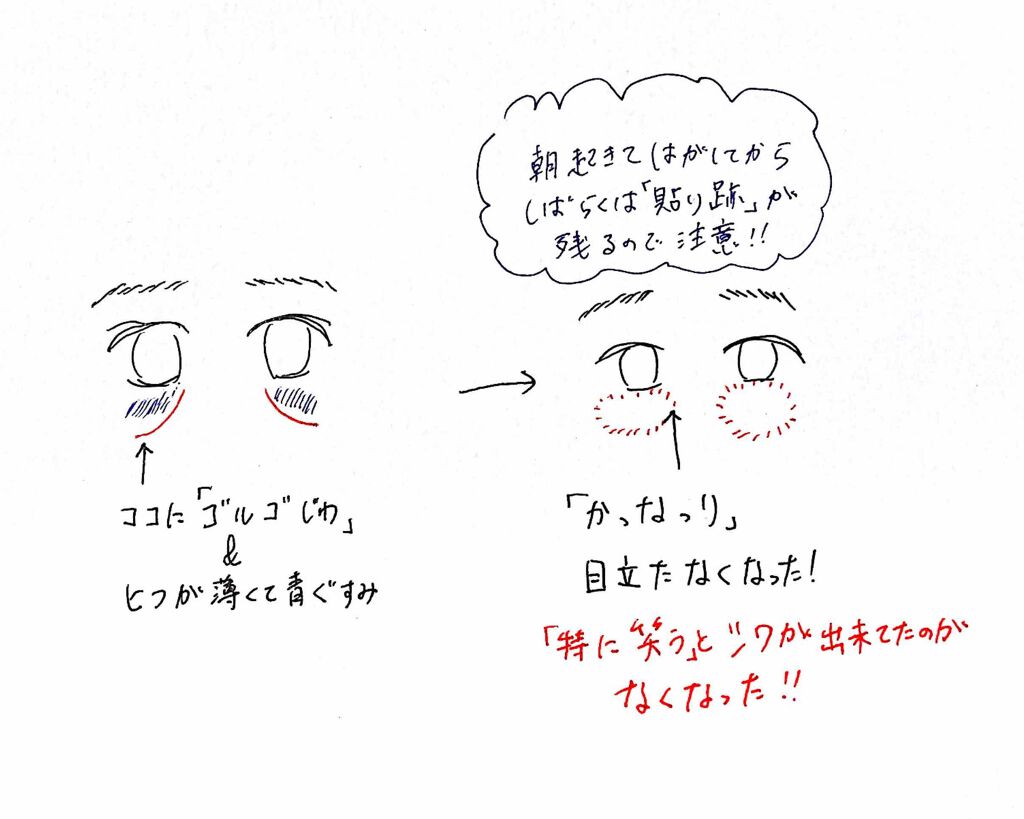 朝起きてはがしてから
しばらくは「貼り跡」が
残るので注意!!
ココに「ゴルゴじわ」
&
ヒフが薄くて青ぐすみ
「かっなっり」
目立たなくなった!
「特に"笑う」とシワが出来てたのが
なくなった!!